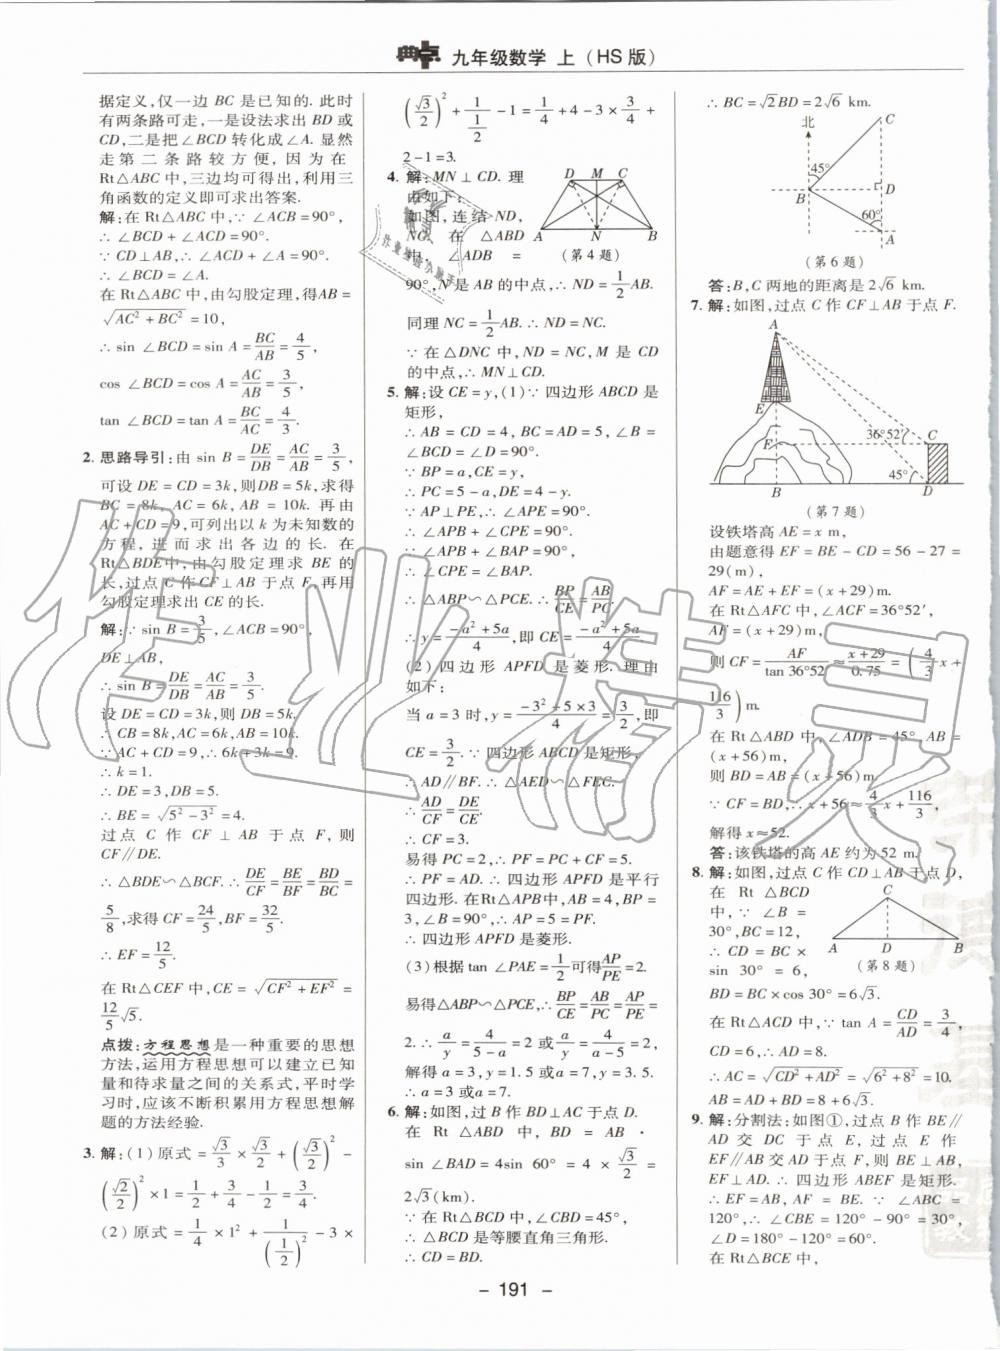 典点 九年级数学 上(HS版)
据定义,仅一边 BC 是已知的.此时
有两条路可走,一是设法求出 BD 或
CD,二是把∠BCD 转化成∠A. 显然
走第二条路较方便,因为在
Rt△ABC 中,三边均可得出,利用三
角函数的定义即可求出答案.
解:在 Rt△ABC 中,∵∠ACB=90°,
∴∠BCD+∠ACD=90°.
∵CD⊥AB,∴∠A+∠ACD=90°.
∴∠BCD=∠A.
在 Rt△ABC 中,由勾股定理,得AB=
√(AC²+BC²)=10,
∴sin∠BCD=sin A=BC/AB=4/5,
cos∠BCD=cos A=AC/AB=3/5,
tan∠BCD=tan A=BC/AC=4/3.
2. 思路导引:由 sin B=DE/DB=AC/AB=3/5,
可设 DE=CD=3k,则DB=5k,求得
BC=8k,AC=6k,AB=10k. 再由
AC+CD=9,可列出以 k 为未知数的
方程,进而求出各边的长. 在
Rt△BDE中,由勾股定理求 BE 的
长,过点 C 作 CF⊥AB 于点 F,再用
勾股定理求出 CE 的长.
解:∵sin B=3/5,∠ACB=90°,
DE⊥AB,
∴sin B=DE/DB=AC/AB=3/5.
设 DE=CD=3k,则 DB=5k.
∴CB=8k,AC=6k,AB=10k.
∵AC+CD=9,∴6k+3k=9.
∴k=1.
∴DE=3,DB=5.
∴BE=√(5²-3²)=4.
过点 C 作 CF⊥AB 于点 F,则
CF∥DE.
∴△BDE∽△BCF.∴DE/CF=BE/BF=BD/BC=
5/8,求得 CF=24/5,BF=32/5.
∴EF=12/5.
在 Rt△CEF 中,CE=√(CF²+EF²)=
12/5√5.
点拨:方程思想是一种重要的思想
方法,运用方程思想可以建立已知
量和待求量之间的关系式,平时学
习时,应该不断积累用方程思想解
题的方法经验.
3. 解:(1)原式=√3/3×√3/2+(√3/2)²-
(√2/2)²×1=1/2+3/4-1/2=3/4.
(2)原式=1/4×1²+1/(1/2)²-3×
(√3/2)²+1/(1/2)-1=1/4+4-3×3/4+
2-1=3.
4. 解:MN⊥CD. 理
由如下:
如图,连结 ND,
NC. 在 △ABD
中,∠ADB=
D M C
A N B
(第4题)
90°,N 是 AB 的中点,∴ND=1/2AB.
同理 NC=1/2AB.∴ND=NC.
∵在△DNC 中,ND=NC,M 是 CD
的中点,∴MN⊥CD.
5. 解:设 CE=y,(1)∵四边形 ABCD 是
矩形,
∴AB=CD=4,BC=AD=5,∠B=
∠BCD=∠D=90°.
∵BP=a,CE=y,
∴PC=5-a,DE=4-y.
∵AP⊥PE,∴∠APE=90°.
∴∠APB+∠CPE=90°.
∵∠APB+∠BAP=90°,
∴∠CPE=∠BAP.
∴△ABP∽△PCE.∴BP/CE=AB/PC.
∴y=(-a²+5a)/4,即 CE=(-a²+5a)/4.
(2)四边形 APFD 是菱形. 理由
如下:
当 a=3 时,y=(-3²+5×3)/4=3/2,即
CE=3/2.∵四边形 ABCD 是矩形,
∴AD∥BF.∴△AED∽△FEC.
∴AD/CF=DE/CE.
∴CF=3.
易得 PC=2,∴PF=PC+CF=5.
∴PF=AD.∴四边形 APFD 是平行
四边形. 在Rt△APB中,AB=4,BP=
3,∠B=90°,∴AP=5=PF.
∴四边形 APFD 是菱形.
(3)根据tan∠PAE=1/2可得AP/PE=2.
易得△ABP∽△PCE,∴BP/CE=AB/PC=AP/PE=
2.∴a/y=4/(5-a)=2 或a/y=4/(a-5)=2,
解得 a=3,y=1.5 或a=7,y=3.5.
∴a=3 或a=7.
6. 解:如图,过 B 作 BD⊥AC 于点 D.
在 Rt△ABD 中,BD=AB·
sin∠BAD=4sin 60°=4×√3/2=
2√3(km).
∵在 Rt△BCD 中,∠CBD=45°,
∴△BCD 是等腰直角三角形.
∴CD=BD.
∴BC=√2BD=2√6 km.
北 C
45°
B D
60°
A
(第6题)
答:B,C 两地的距离是 2√6 km.
7. 解:如图,过点 C 作 CF⊥AB 于点 F.
A
E
F 36°52′ C
45°
B D
(第7题)
设铁塔高 AE=x m,
由题意得 EF=BE-CD=56-27=
29(m),
AF=AE+EF=(x+29)m.
在 Rt△AFC 中,∠ACF=36°52′,
AF=(x+29)m,
则 CF=AF/tan 36°52′≈(x+29)/0.75=(4/3x+
116/3)m.
在 Rt△ABD 中,∠ADB=45°,AB=
(x+56)m,
则 BD=AB=(x+56)m.
∵CF=BD,∴x+56≈4/3x+116/3,
解得 x≈52.
答:该铁塔的高 AE 约为 52 m.
8. 解:如图,过点 C 作 CD⊥AB 于点 D,
在 Rt△BCD
中,∵∠B=
30°,BC=12,
∴CD=BC×
sin 30°=6,
C
A D B
(第8题)
BD=BC×cos 30°=6√3.
在 Rt△ACD 中,∵tan A=CD/AD=3/4,
CD=6,∴AD=8.
∴AC=√(CD²+AD²)=√(6²+8²)=10.
AB=AD+BD=8+6√3.
9. 解:分割法:如图①,过点 B 作 BE∥
AD 交 DC 于点 E,过点 E 作
EF∥AB 交 AD 于点 F,则 BE⊥AB,
EF⊥AD.∴四边形 ABEF 是矩形.
∴EF=AB,AF=BE.∵∠ABC=
120°,∴∠CBE=120°-90°=30°,
∠D=180°-120°=60°.
在 Rt△BCE 中,
- 191 -
作业精灵